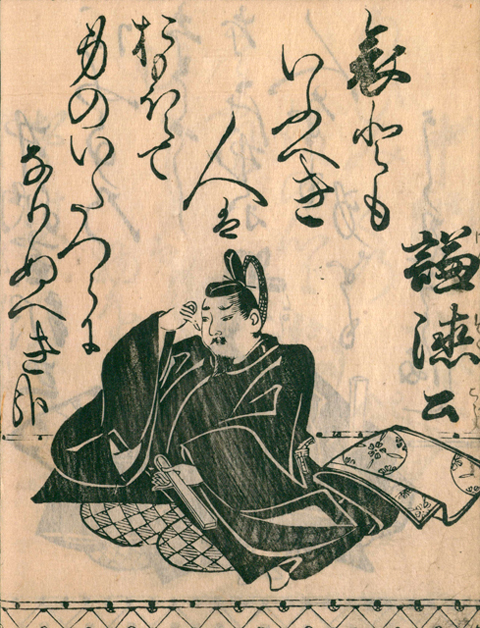 謙徳公
哀とも
いふへき
人は
おもほえて
身のいたつらに
なりぬへき哉